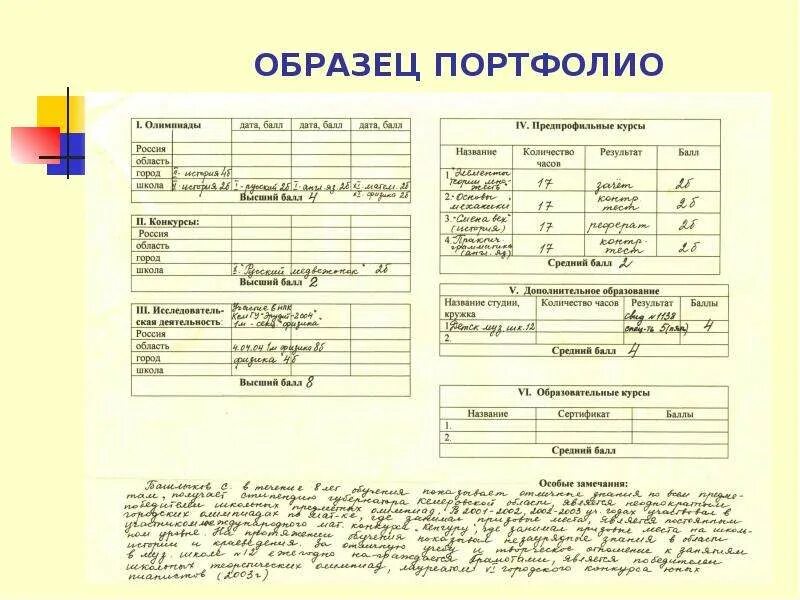 ОБРАЗЕЦ ПОРТФОЛИО
I. Олимпиады дата, балл дата, балл дата, балл
Россия
область
город II - история 4б
школа II - история 2б I - русский 2б I - англ. яз. 2б II - матем. 2б
физика 2б
Высший балл 4
II. Конкурсы:
Россия
область
город
школа "Русский медвежонок" 2б
Высший балл 2
III. Исследователь-
ская деятельность:
Участие в НПК
КемГУ "Эрудит-2004"
1м - секц. физика
Россия
область 4.04.04 1м физика 8б
город физика 4б
школа
Высший балл 8
IV. Предпрофильные курсы
Название Количество часов Результат Балл
1. Элементы теории 17 зачёт 2б
2. Основы механики 17 контр. тест 2б
3. "Смена вех" (история) 17 реферат 2б
4. Практич. грамматика (англ. яз) 17 контр. тест 2б
Средний балл 2
V. Дополнительное образование
Название студии, кружка Количество часов Результат Баллы
1. Детск. муз. шк. 12 свид №1138 4
2.
Средний балл 4
VI. Образовательные курсы
Название Сертификат Баллы
1.
2.
Средний балл
Особые замечания:
Башлыков С. в течение 8 лет обучения показывает отличные знания по всем предме-
там, получает стипендию губернатора Кемеровской области, является неоднократным
победителем школьных предметных олимпиад. В 2001-2002, 2002-2003 уч. годах участвовал в
городских олимпиадах по мат-ке, где занимал призовые места, является постоянным
участником международного мат. конкурса "Кенгуру", где занимал призовые места на школь-
ном уровне. На протяжении обучения показывал незаурядные знания в области
истории и краеведения. За отличную учебу и творческое отношение к занятиям
в муз. школе №12 ежегодно награждается грамотами, является победителем
школьных теоретических олимпиад, лауреатом VI городского конкурса юных
пианистов (2003г)